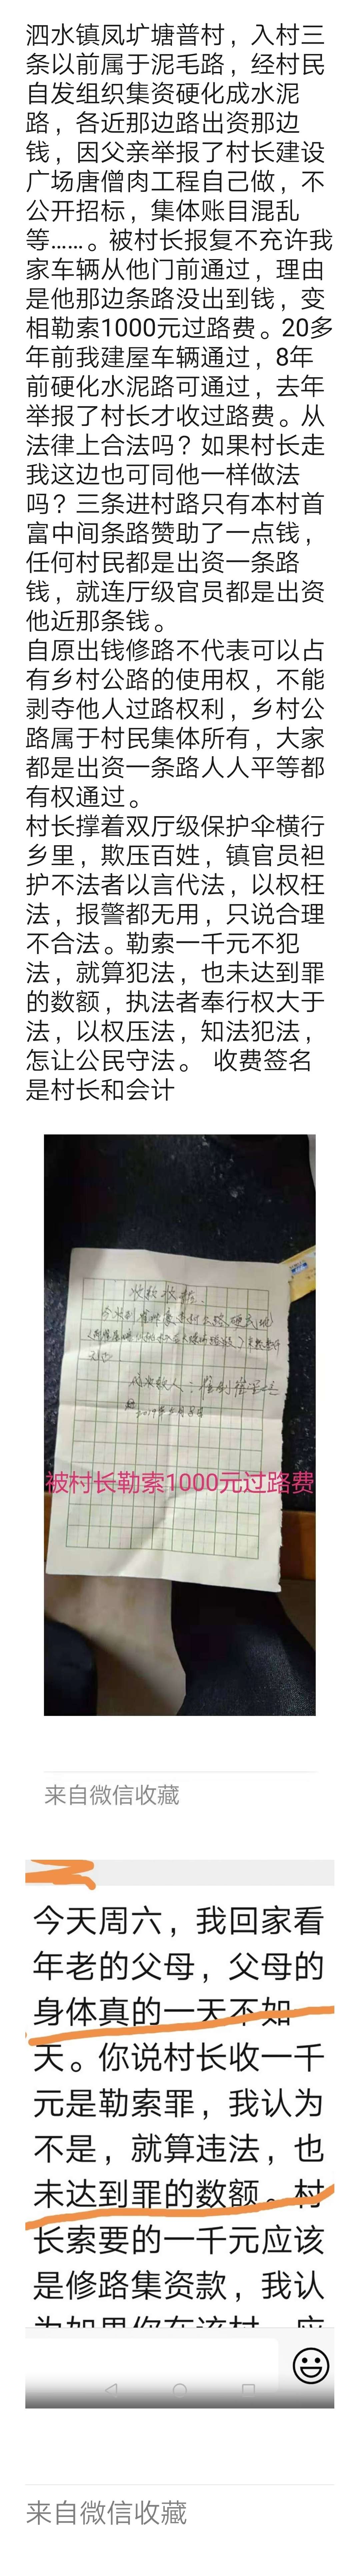 泗水镇凤圹塘普村，入村三
条以前属于泥毛路，经村民
自发组织集资硬化成水泥
路，各近那边路出资那边
钱，因父亲举报了村长建设
广场唐僧肉工程自己做，不
公开招标，集体账目混乱
等……。被村长报复不充许我
家车辆从他门前通过，理由
是他那边条路没出到钱，变
相勒索1000元过路费。20多
年前我建屋车辆通过，8年
前硬化水泥路可通过，去年
举报了村长才收过路费。从
法律上合法吗？如果村长走
我这边也可同他一样做法
吗？三条进村路只有本村首
富中间条路赞助了一点钱，
任何村民都是出资一条路
钱，就连厅级官员都是出资
他近那条钱。
自原出钱修路不代表可以占
有乡村公路的使用权，不能
剥夺他人过路权利，乡村公
路属于村民集体所有，大家
都是出资一条路人人平等都
有权通过。
村长撑着双厅级保护伞横行
乡里，欺压百姓，镇官员袒
护不法者以言代法，以权枉
法，报警都无用，只说合理
不合法。勒索一千元不犯
法，就算犯法，也未达到罪
的数额，执法者奉行权大于
法，以权压法，知法犯法，
怎让公民守法。 收费签名
是村长和会计
收款收据
今收到
收款人：
2019年
被村长勒索1000元过路费
来自微信收藏
今天周六，我回家看
年老的父母，父母的
身体真的一天不如一
天。你说村长收一千
元是勒索罪，我认为
不是，就算违法，也
未达到罪的数额。村
长索要的一千元应该
是修路集资款，我认
为如果你在该村，应
来自微信收藏